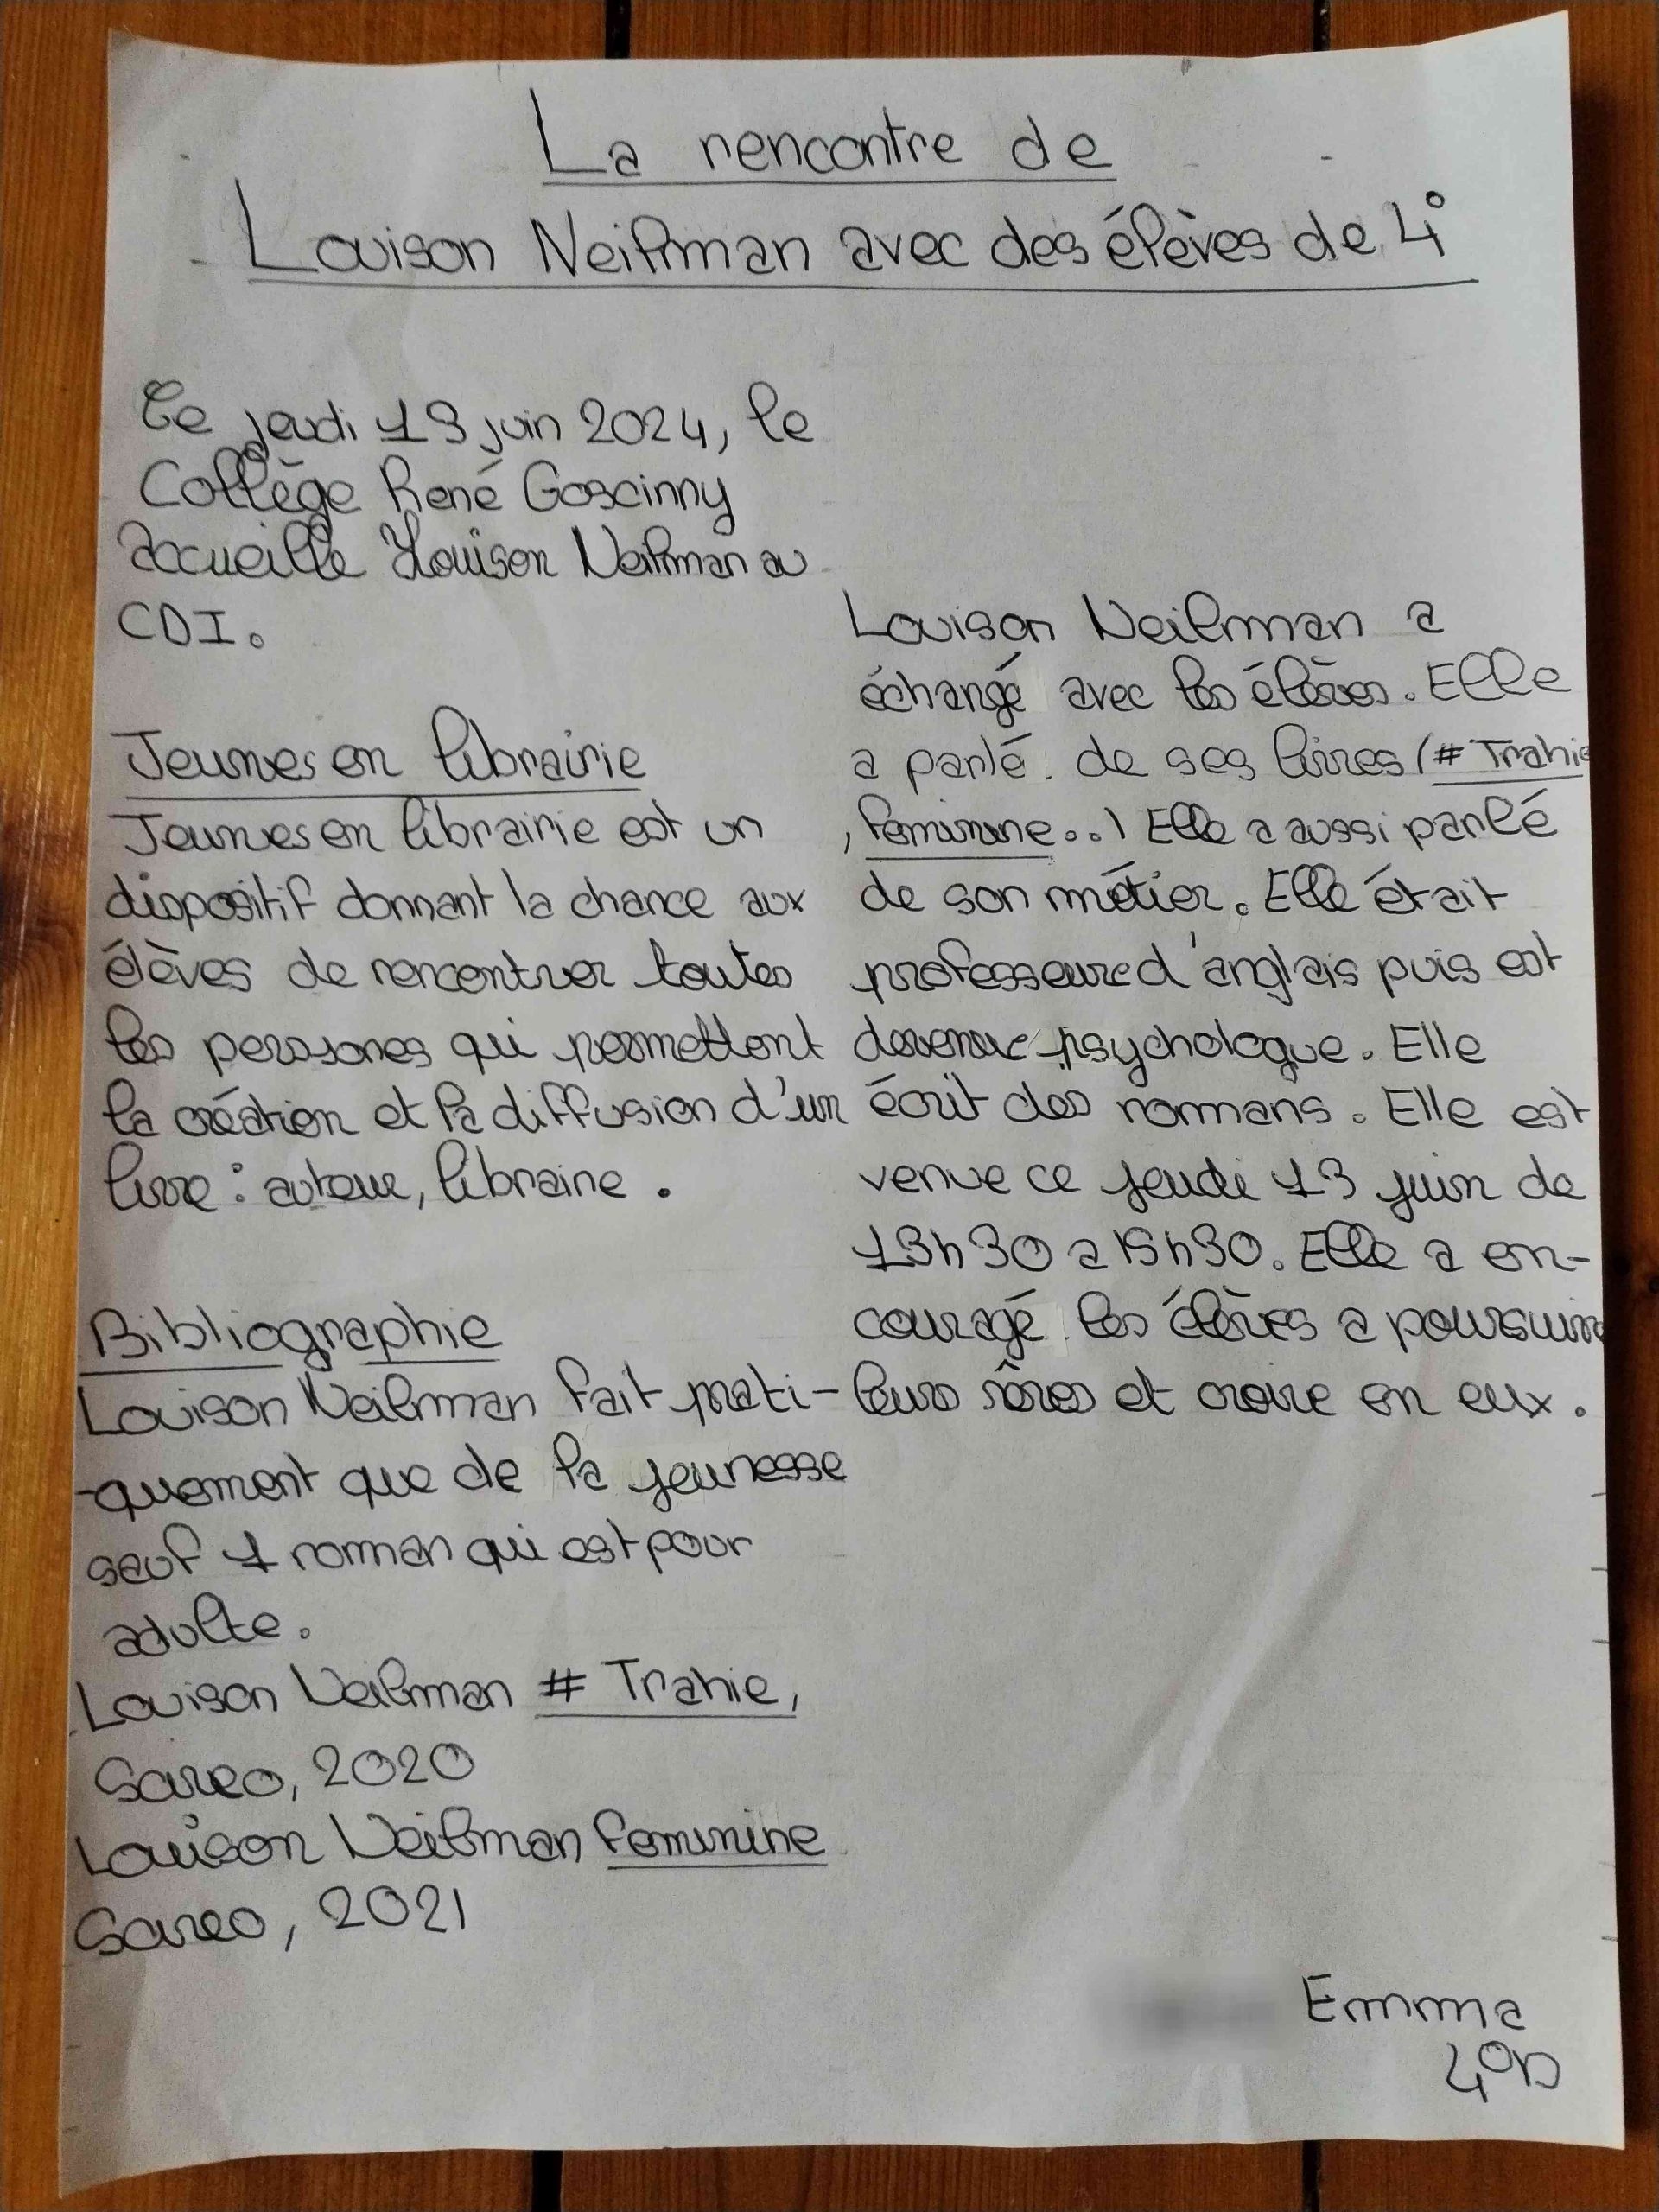 La rencontre de
Louison Neilman avec des élèves de 4°
Ce jeudi 13 juin 2024, le
Collège René Goscinny
accueille Louison Neilman au
CDI.
Jeunes en librairie
Jeunes en librairie est un
dispositif donnant la chance aux
élèves de rencontrer toutes
les persones qui permettent
la création et la diffusion d'un
livre : auteur, libraire.
Bibliographie
Louison Neilman fait prati-
-quement que de la jeunesse
sauf 1 roman qui est pour
adulte.
Louison Neilman # Trahie,
2020
Louison Neilman feminine
2021
Louison Neilman a
échangé avec les élèves. Elle
a parlé de ses livres (# Trahie
, feminine..) Elle a aussi parlé
de son métier. Elle était
professeure d'anglais puis est
devenue psychologue. Elle
écrit des romans. Elle est
venue ce jeudi 13 juin de
13h30 a 15h30. Elle a en-
couragé les élèves a poursuivre
leurs rêves et croire en eux.
Emma